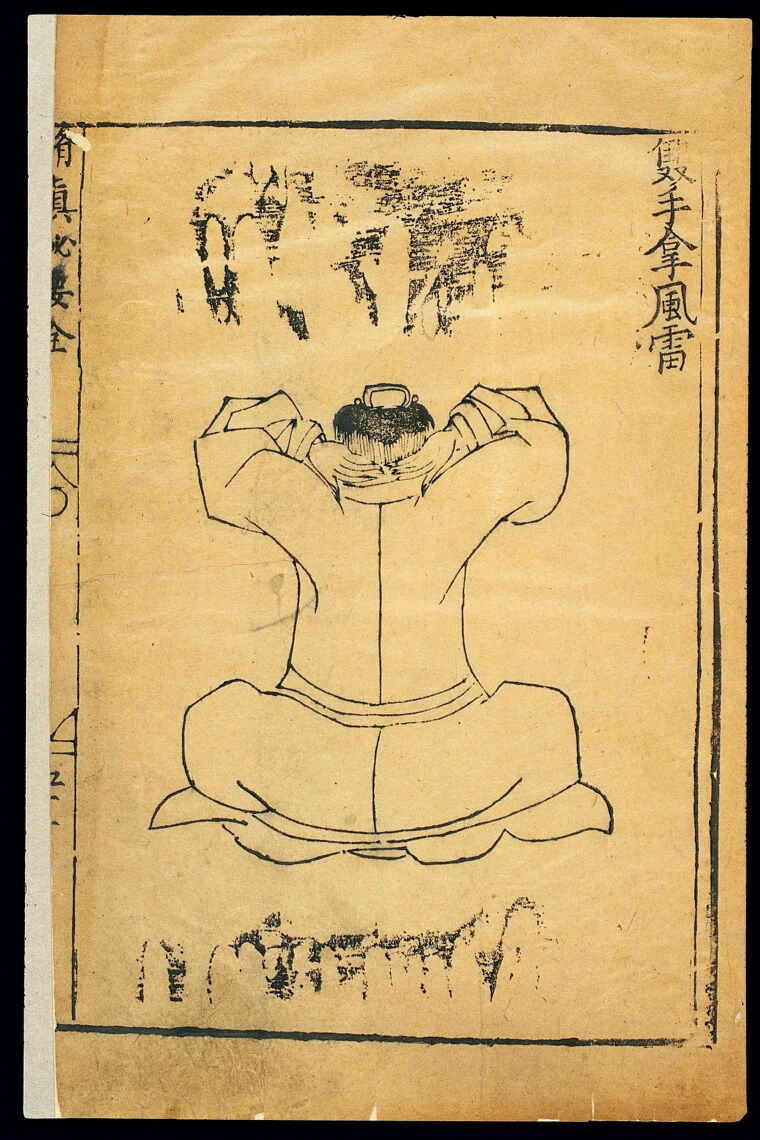 雙手拿風雷
脩真秘要全